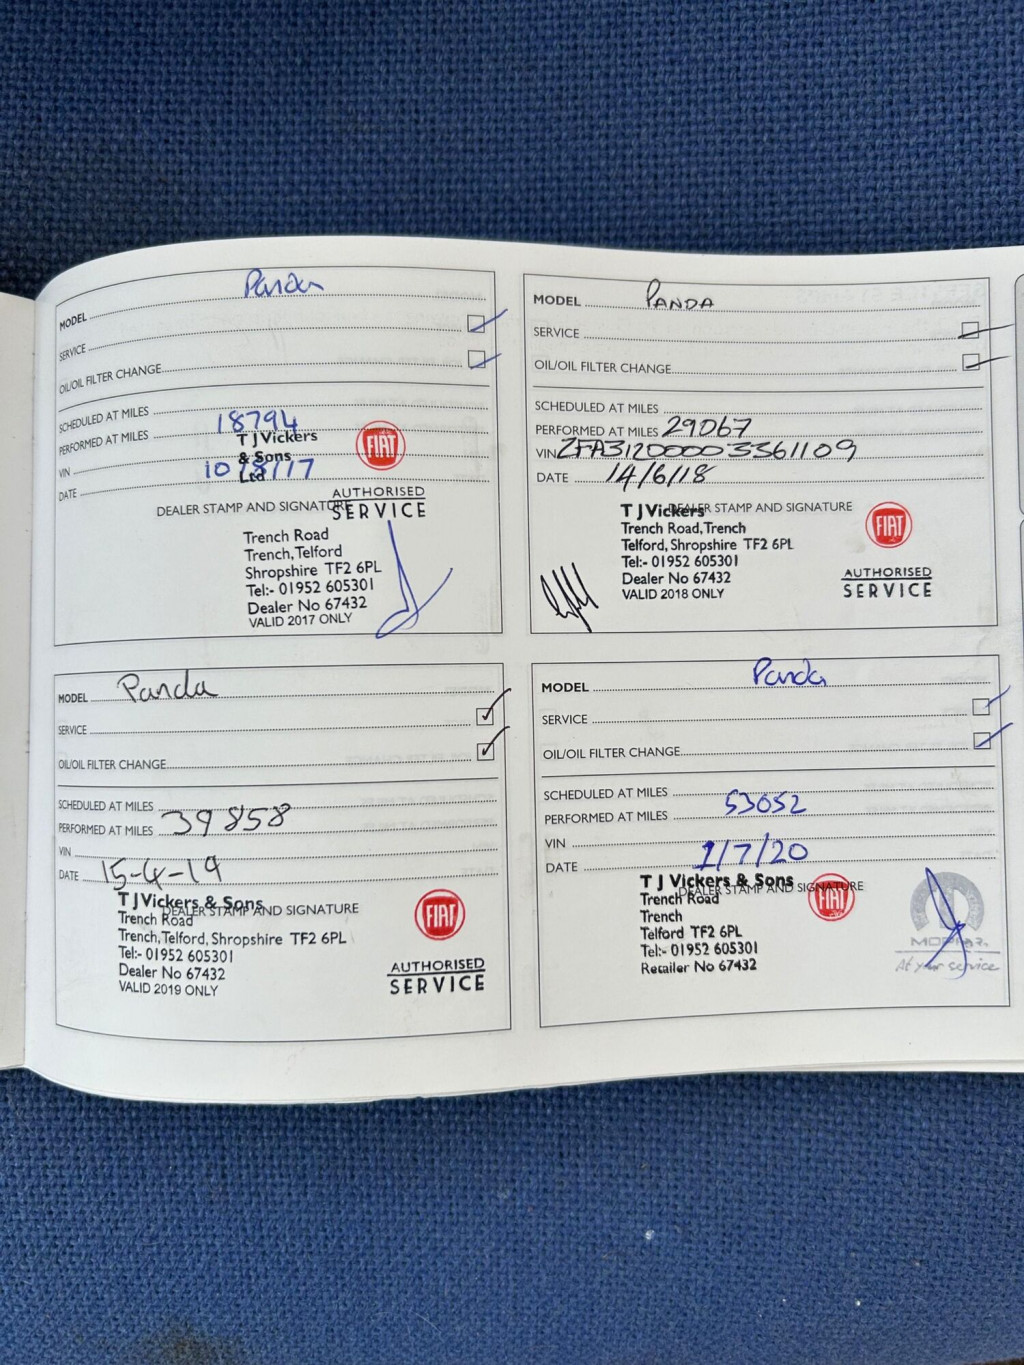 MODEL Panda
SERVICE
OIL/OIL FILTER CHANGE
SCHEDULED AT MILES
PERFORMED AT MILES 18794
VIN
DATE 10/8/17
DEALER STAMP AND SIGNATURE
T J Vickers
& Sons
Ltd
FIAT
AUTHORISED
SERVICE
Trench Road
Trench, Telford
Shropshire TF2 6PL
Tel:- 01952 605301
Dealer No 67432
VALID 2017 ONLY
MODEL PANDA
SERVICE
OIL/OIL FILTER CHANGE
SCHEDULED AT MILES
PERFORMED AT MILES 29067
VIN ZFA31200003361109
DATE 14/6/18
DEALER STAMP AND SIGNATURE
T J Vickers
Trench Road, Trench
Telford, Shropshire TF2 6PL
Tel:- 01952 605301
Dealer No 67432
VALID 2018 ONLY
FIAT
AUTHORISED
SERVICE
MODEL Panda
SERVICE
OIL/OIL FILTER CHANGE
SCHEDULED AT MILES
PERFORMED AT MILES 39858
VIN
DATE 15-4-19
DEALER STAMP AND SIGNATURE
T J Vickers & Sons
Trench Road
Trench, Telford, Shropshire TF2 6PL
Tel:- 01952 605301
Dealer No 67432
VALID 2019 ONLY
FIAT
AUTHORISED
SERVICE
MODEL Panda
SERVICE
OIL/OIL FILTER CHANGE
SCHEDULED AT MILES
PERFORMED AT MILES 53052
VIN
DATE 1/7/20
DEALER STAMP AND SIGNATURE
T J Vickers & Sons
Trench Road
Trench
Telford TF2 6PL
Tel:- 01952 605301
Retailer No 67432
FIAT
MOPAR
At your service